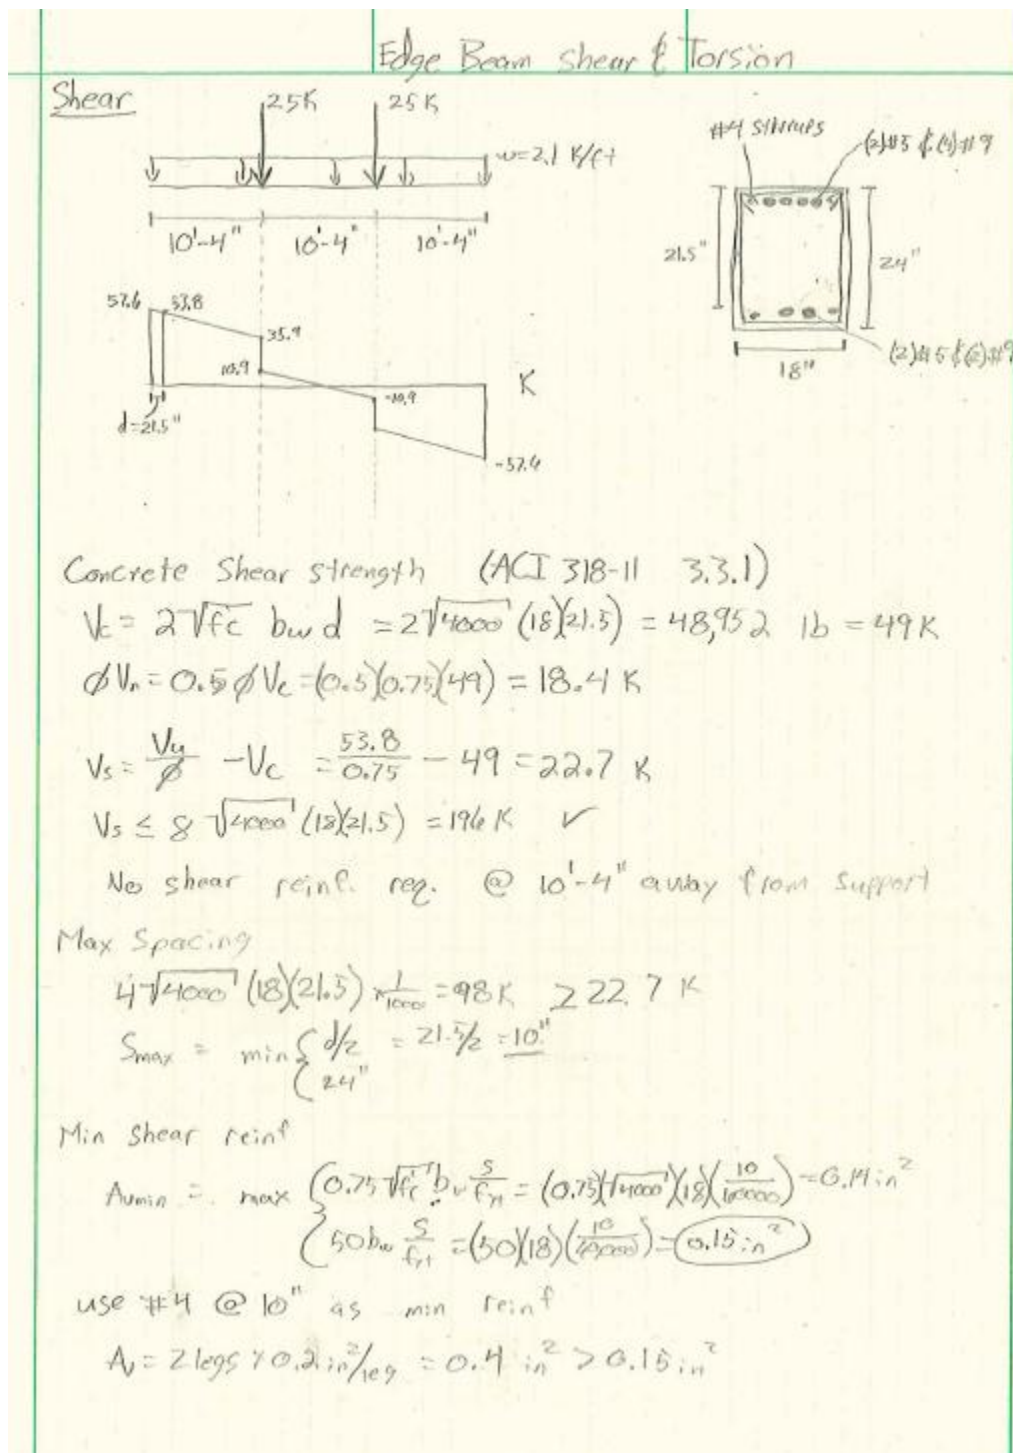 Edge Beam Shear & Torsion
Shear
25K 25K
w=2.1 K/ft
10'-4" 10'-4" 10'-4"
#4 stirrups
(2)#5 & (4)#9
21.5" 24"
18"
(2)#5 & (2)#9
57.6 53.8
35.9
10.9
-10.9
K
d=21.5"
-57.6
Concrete Shear strength (ACI 318-11 3.3.1)
Vc = 2√fc bw d = 2√4000 (18)(21.5) = 48,952 lb = 49K
ϕVn = 0.5ϕVc = (0.5)(0.75)(49) = 18.4 K
Vs = Vu/ϕ - Vc = 53.8/0.75 - 49 = 22.7 K
Vs ≤ 8 √4000 (18)(21.5) = 196K ✓
No shear reinf. req. @ 10'-4" away from support
Max Spacing
4√4000 (18)(21.5) × 1/1000 = 98K ≥ 22.7 K
Smax = min { d/2 = 21.5/2 = 10"
24"
Min Shear reinf
Avmin = max { 0.75 √f'c bw s/fyt = (0.75)(√4000)(18)(10/60000) = 0.14 in²
50bw s/fyt = (50)(18)(10/60,000) = 0.15 in²
use #4 @ 10" as min reinf
Av = 2 legs × 0.2 in²/leg = 0.4 in² > 0.15 in²